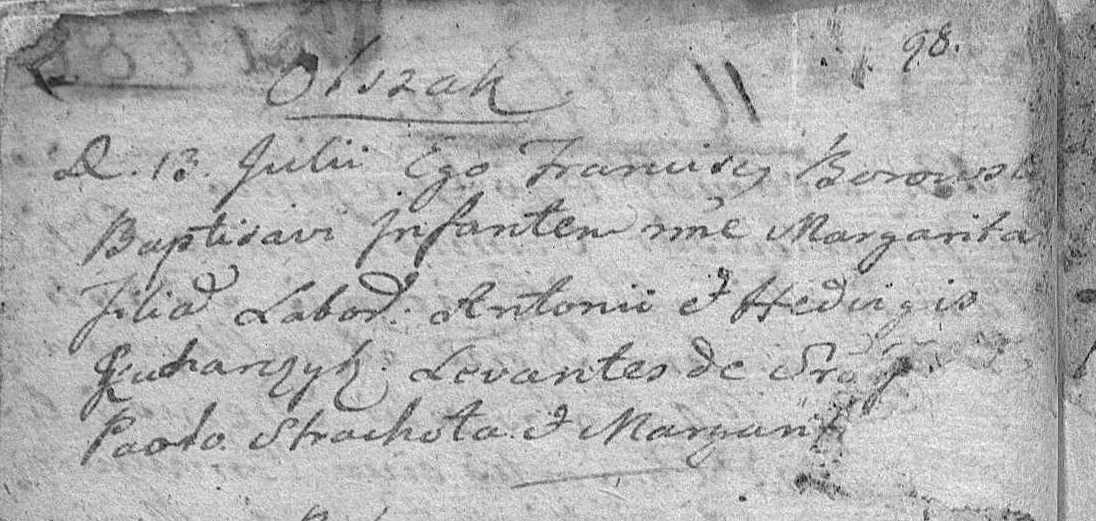 98.
Obszak
D. 13. Julii Ego Francisc9 Borowsk
Baptisavi Jnfantem nne Margarita
Filia Labor. Antonii et Hedvigis
Levantes de
Strachota et Margarit